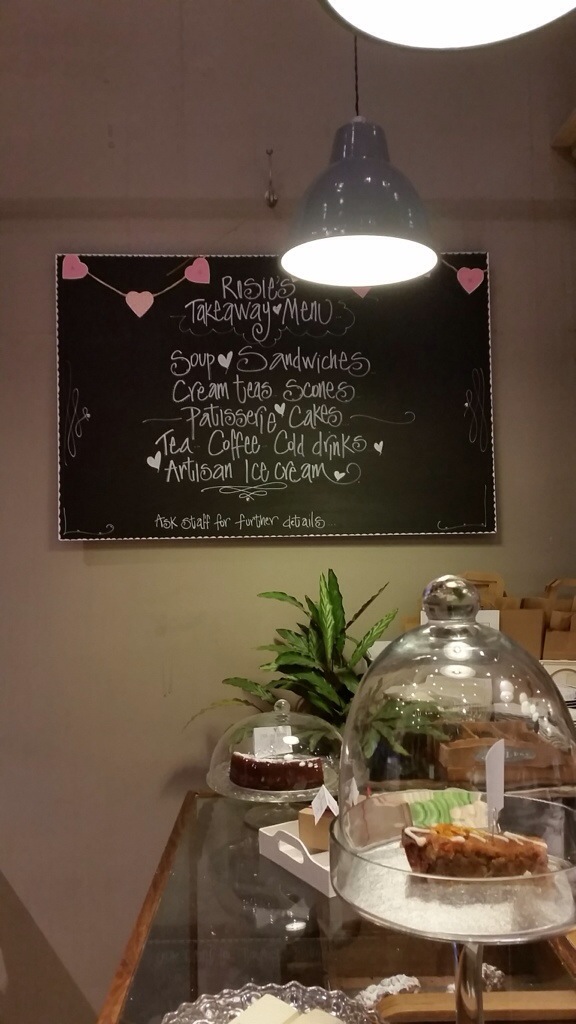 Rosie's
Takeaway Menu
Soup Sandwiches
Cream teas Scones
Patisserie Cakes
Tea Coffee Cold drinks
Artisan Ice cream
Ask staff for further details